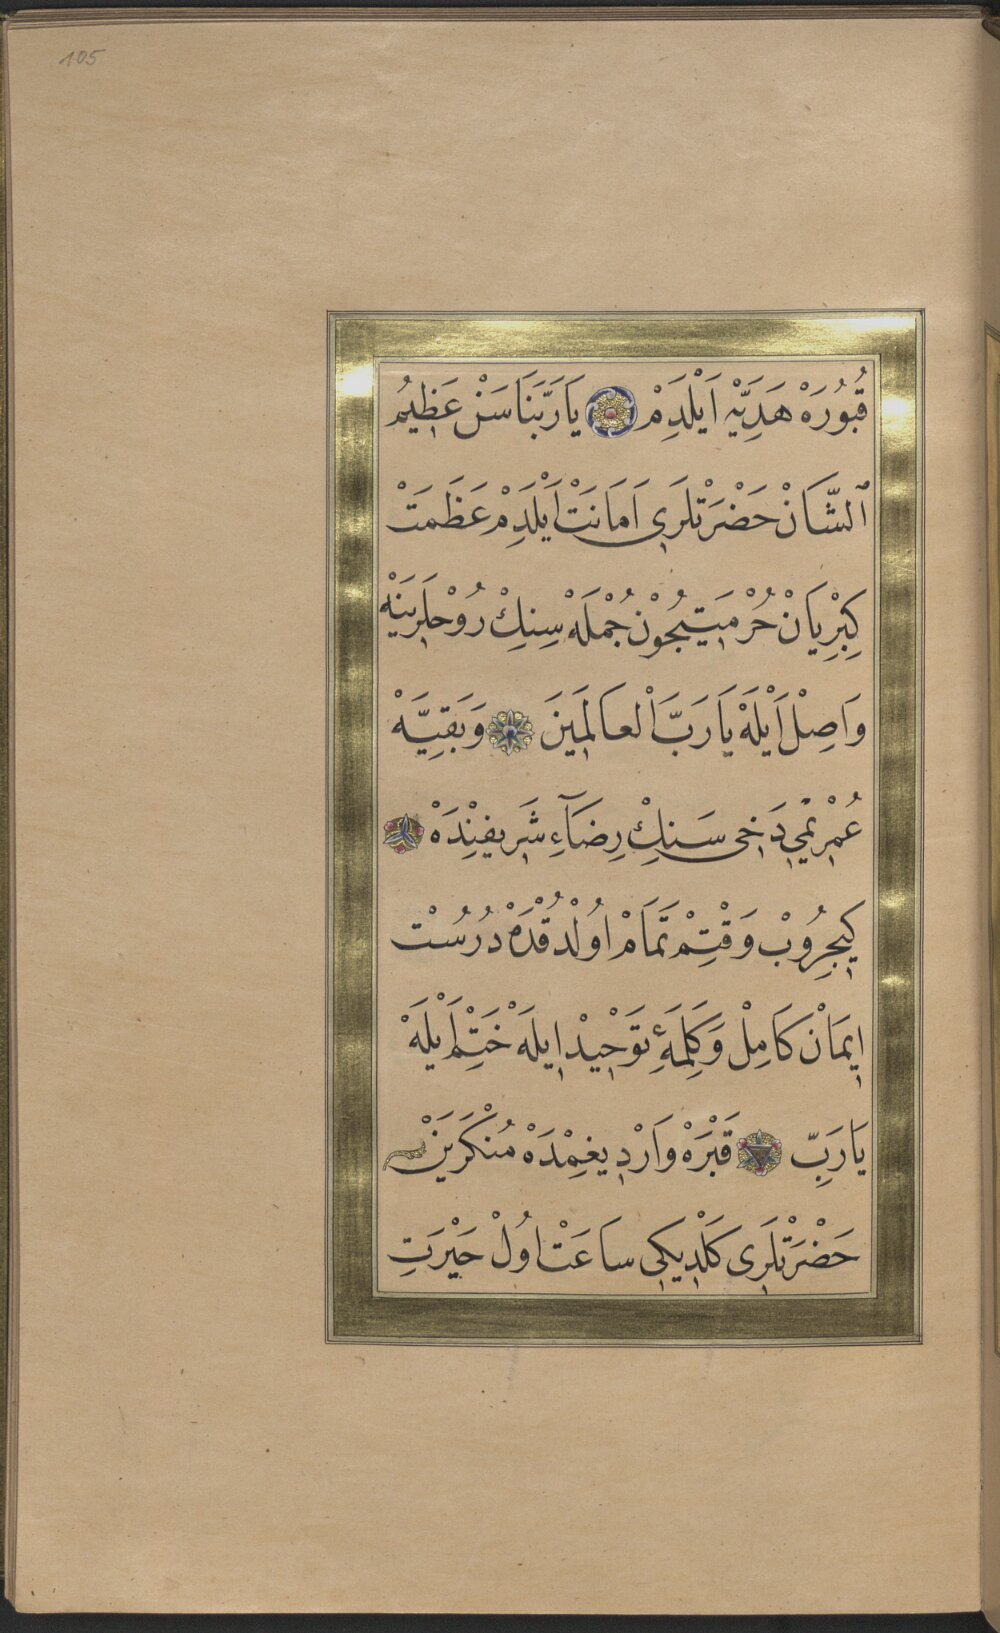 105
قُبُورَهْ هَدِيَّهْ اَيْلَدِمْ يَا رَبَّنَا سَنْ عَظِيمُ
ٱلشَّانْ حَضْرَتْلَرِى اَمَانَتْ اَيْلَدِمْ عَظَمَتْ
كِبْرِيَانْ حُرْمَتِيچُونْ جُمْلَهْ سِنِكْ رُوْحلَرِينَهْ
وَاصِلْ اَيْلَهْ يَا رَبَّ اْلعَالَمِينَ وَبَقِيَّهْ
عُمْرِيمِي دَخِى سَنِكْ رِضَآءِ شَرِيفِنْدَهْ
كِيچِرُوبْ وَقْتِمْ تَمَامْ اوُلْدُقْدَهْ دُرُسْت
اِيمَانْ كَامِلْ وَكَلِمَهِٔ تَوْحِيدْ اِيلَهْ خَتْمِ اَيْلَهْ
يَا رَبِّ قَبْرَهْ وَارْدِيغِمْدَهْ مُنْكَرَيَنْ
حَضْرَتْلَرِى كَلْدِيكِى سَاعَتْ اوُلْ حَيْرَتِ